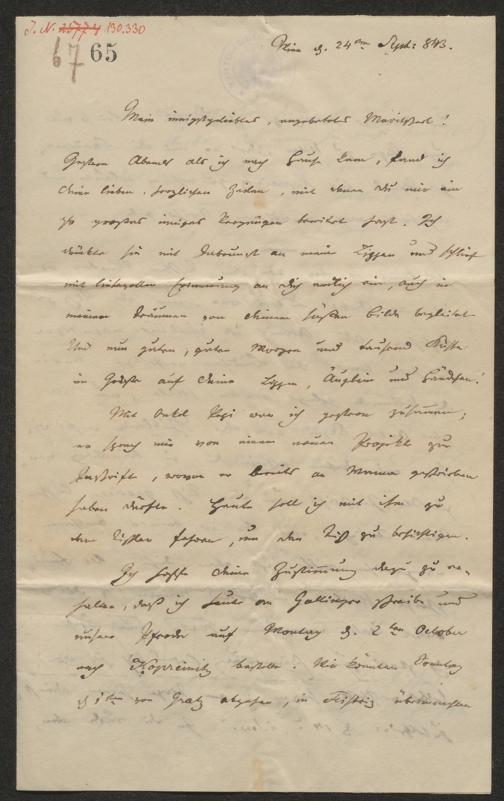 J. N. 25774 130.330
67 65
Wien d. 24ten Sept: 893.
Mein innigstgeliebtes, angebetetes !
Gestern Abends als ich nach Hause kam, fand ich
deine lieben, herzlichen Zeilen, mit denen du mir ein
so großes inniges Vergnügen bereitet hast. Ich
drückte sie mit Inbrunst an meine Lippen und schlief
mit liebevoller Erinnerung an dich endlich ein, auch in
meinen Träumen von deinem süßen Bilde begleitet.
Und nun guten, guten Morgen und tausend Küsse
im Geiste auf deine Lippen, Äuglein und Händchen!
Mit Onkel Pepi war ich gestern zusammen;
er sprach mir von einem neuen Projekte zur
, wovon er bereits an Mama geschrieben
haben dürfte. Heute soll ich mit ihm zu
dem Tischler fahren, um den Tisch zu besichtigen.
Ich hoffe deine Zustimmung dazu zu er-
halten, daß ich heute an schreibe und
unsere Pferde auf Montag d. 2ten October
nach bestelle. Wir könnten Sonntag
d 1ten von Gratz abgehen, in Feistritz übernachten